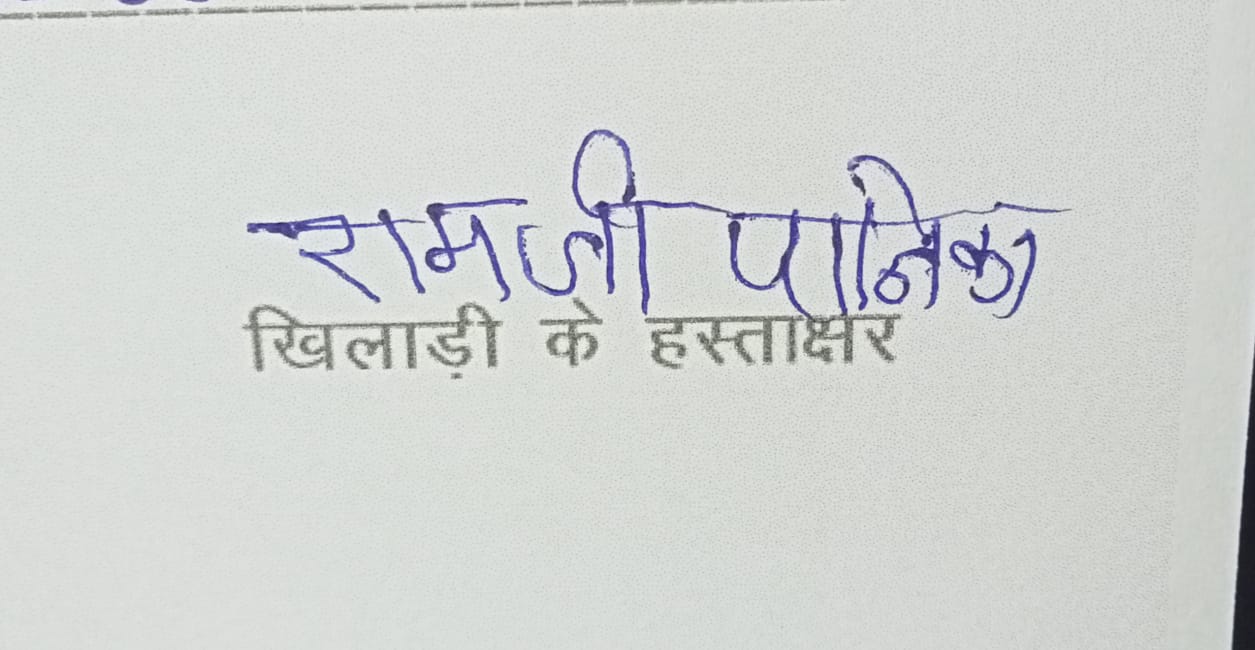 रामजी पानिका
खिलाड़ी के हस्ताक्षर